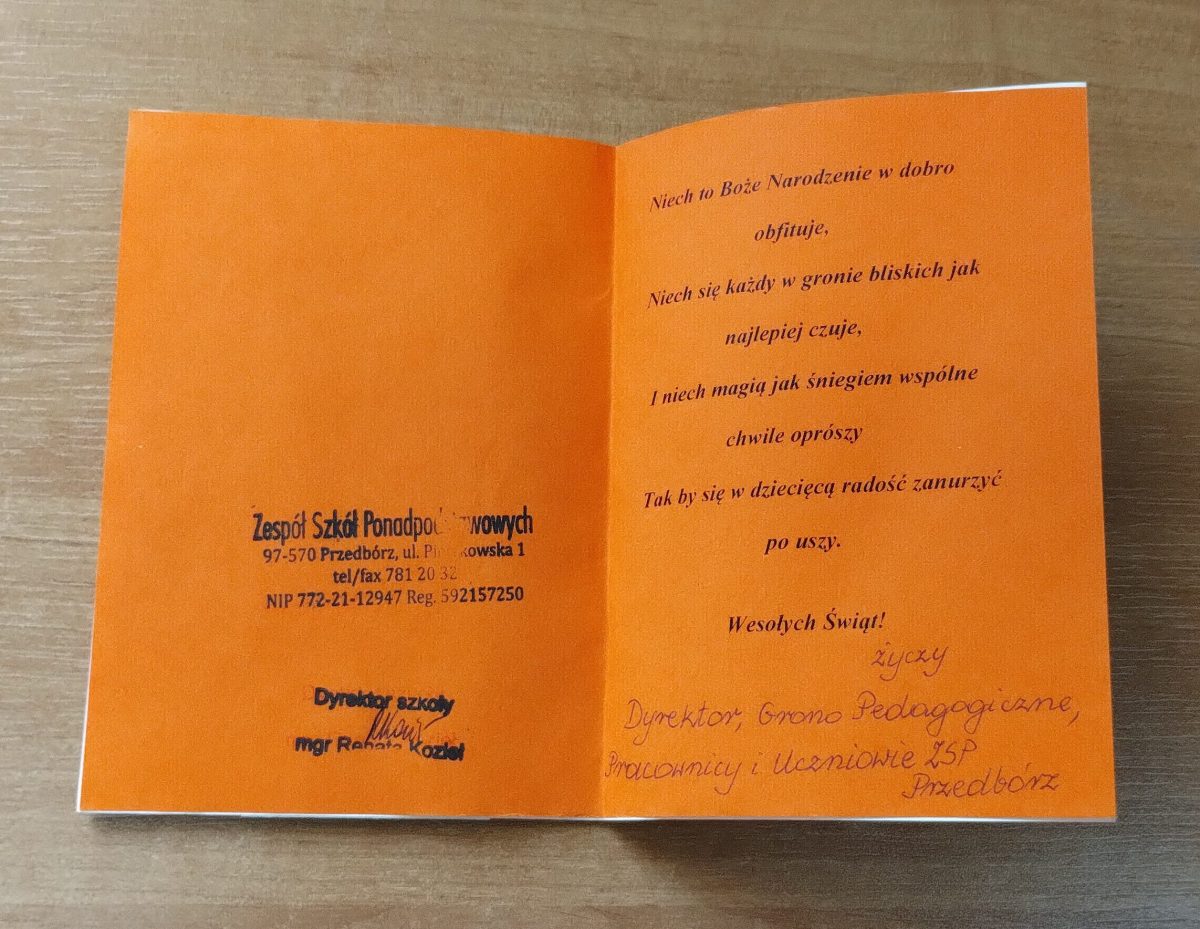 Zespół Szkół
97-570 Przedbórz, ul.
tel/fax 781 20 32
NIP 772-21-12947 Reg. 592157250
Dyrektor szkoły
mgr Renata Kozieł
Niech to Boże Narodzenie w dobro
obfituje,
Niech się każdy w gronie bliskich jak
najlepiej czuje,
I niech magią jak śniegiem wspólne
chwile oprószy
Tak by się w dziecięcą radość zanurzyć
po uszy.
Wesołych Świąt!
życzy
Dyrektor, Grono Pedagogiczne,
Pracownicy i Uczniowie ZSP
Przedbórz